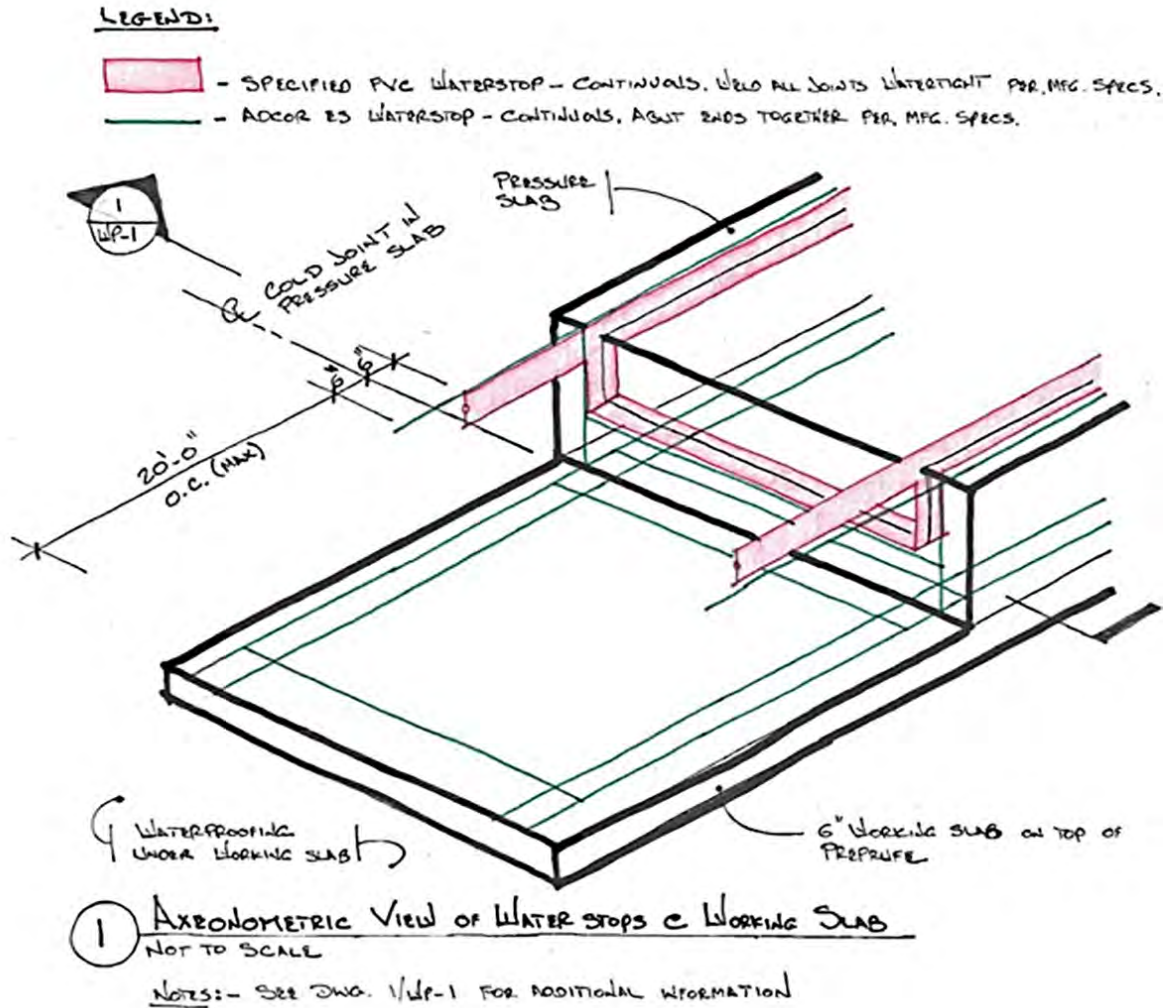 LEGEND:
- SPECIFIED PVC WATERSTOP - CONTINUOUS. WELD ALL JOINTS WATERTIGHT PER. MFG. SPECS.
- ADCOR ES WATERSTOP - CONTINUOUS. ABUT ENDS TOGETHER PER. MFG. SPECS.
PRESSURE
SLAB
1
WP-1
COLD JOINT IN
PRESSURE SLAB
6" 6"
20'-0"
O.C. (MAX)
WATERPROOFING
UNDER WORKING SLAB
6" WORKING SLAB ON TOP OF
PREPRUFE
1 AXEONOMETRIC VIEW OF WATER STOPS @ WORKING SLAB
NOT TO SCALE
NOTES:- SEE DWG. 1/WP-1 FOR ADDITIONAL INFORMATION